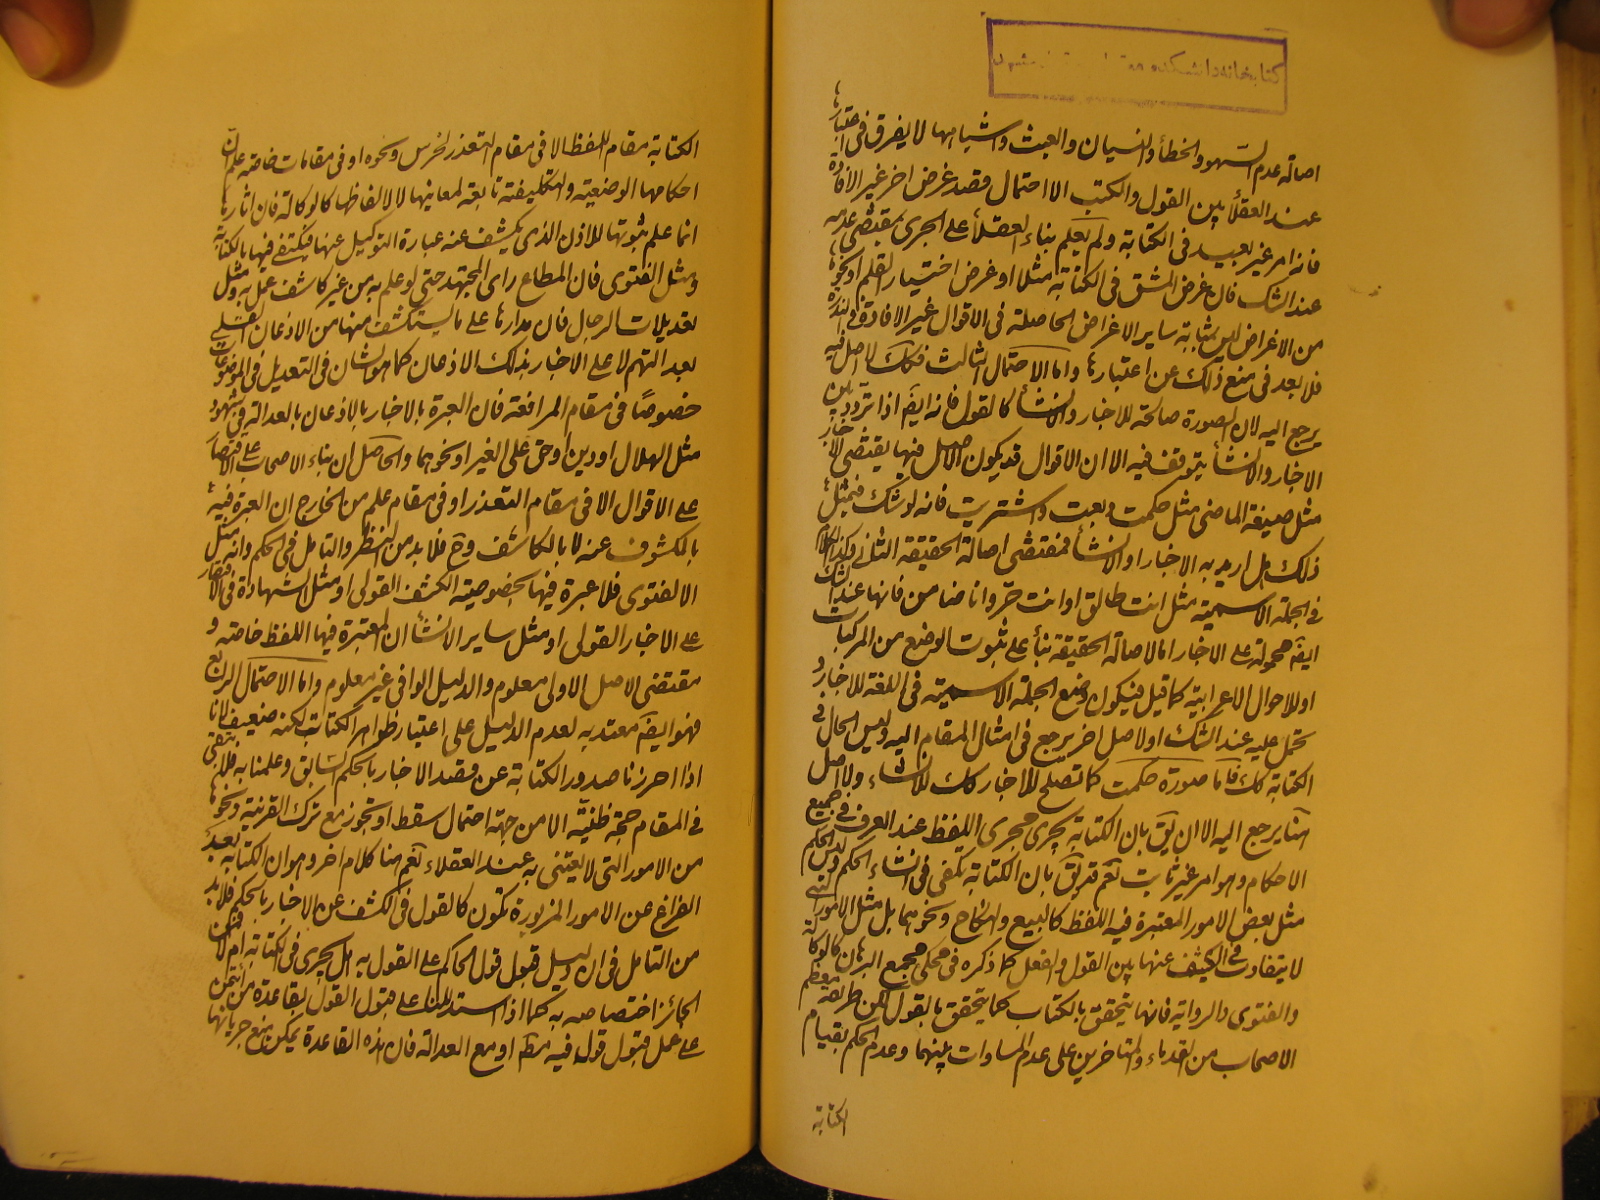 كتابخانه دانشكده
اصالة عدم السهو والخطأ والنسيان والعبث واشباهها لا يفرق في اعتبارها
عند العقلاء بين القول والكتب الا احتمال قصد غرض اخر غير الافادة
فانه امر غير بعيد في الكتابة ولم يعلم بناء العقلاء على الجرى بمقتضى عدمه
عند الشك فان غرض المشق في الكتابة مثلا او غرض اختيار القلم او نحوها
من الاغراض ليس بمثابة ساير الاغراض الحاصلة في الاقوال غير الافادة في الندرة
فلا بعد في منع ذلك عن اعتبارها واما الاحتمال الثالث فكك لا اصل فيه
يرجع اليه لان الصورة صالحة للاخبار والانشاء كالقول فانه ايضا اذا تردد بين
الاخبار والانشاء يتوقف فيه الا ان الاقوال قد يكون الاصل فيها يقتضى الاخبار
مثل صيغة الماضى مثل حكمت وبعت واشتريت فانه لو شك في مثل
ذلك هل اريد به الاخبار او الانشاء فمقتضى اصالة الحقيقة الثانى وكذا الكلام
في الجملة الاسمية مثل انت طالق او انت حر وانا ضامن فانها عند الشك
ايضا محمولة على الاخبار اما لاصالة الحقيقة بناء على ثبوت الوضع من المركبات
او للاحوال الاعرابية كما قيل فيكون وضع الجملة الاسمية في اللغة للاخبار و
تحمل عليه عند الشك او لاصل اخر يرجع في امثال المقام اليه وليس الحال في
الكتابة كك فان صورة حكمت كما تصلح للاخبار كك للانشاء ولا اصل
هنا يرجع اليه الا ان يق بان الكتابة يجرى مجرى اللفظ عند العرف في جميع
الاحكام وهو امر غير ثابت نعم قد يق بان الكتابة تكفى في انشاء الحكم وليس الحكم
مثل بعض الامور المعتبرة فيه اللفظ كالبيع والنكاح ونحوهما بل مثل الامور التى
لا يتفاوت في الكشف عنها بين القول والفعل كما ذكره في محكى مجمع البرهان كالوكالة
والفتوى والرواية فانها يتحقق بالكتاب كما يتحقق بالقول لكن طريقة معظم
الاصحاب من القدماء والمتاخرين على عدم المساوات بينهما وعدم الحكم بقيام
الكتابة
الكتابة مقام اللفظ الا في مقام التعذر لخرس ونحوه او في مقامات خاصة علم ان
احكامها الوضعية والتكليفية تابعة لمعانيها لا لالفاظها كالوكالة فان اثارها
انما علم ثبوتها للاذن الذى يكشف عنه عبارة التوكيل عنها فيكتفى فيها بالكتابة
ومثل الفتوى فان المطاع راى المجتهد حتى لو علم به من غير كاشف عمل به ومثل
تعديلات الرجال فان مدارها على ما يستكشف منها من الاذعان العقلى
بعدالتهم لا على الاخبار بذلك الاذعان كما هو الشان في التعديل في الموضوعات
خصوصا في مقام المرافعة فان العبرة بالاخبار بالاذعان بالعدالة وفي شهود
مثل الهلال او دين او حق على الغير او نحوهما والحاصل ان بناء الاصحاب على الاقتصار
على الاقوال الا في مقام التعذر او في مقام علم من الخارج ان العبرة فيه
بالمكشوف عنه لا بالكاشف وح فلا بد من النظر والتامل في الحكم وانه مثل
الفتوى فلا عبرة فيها بخصوصية الكشف القولى او مثل الشهادة في الاقتصار
على الاخبار القولى او مثل ساير الانشاءان المعتبرة فيها اللفظ خاصة و
مقتضى الاصل الاولى معلوم والدليل الوافى غير معلوم واما الاحتمال الرابع
فهو ايضا معتد به لعدم الدليل على اعتبار ظواهر الكتابة لكنه ضعيف لانا
اذا احرزنا صدور الكتابة عن قصد الاخبار بالحكم السابق وعلمنا به فلا يبقى
في المقام حجة ظنية الا من جهة احتمال سقط او تجوز مع ترك القرينة ونحوها
من الامور التى لا يعتنى به عند العقلاء نعم هنا كلام اخر وهو ان الكتابة بعد
الفراغ عن الامور المزبورة تكون كالقول في الكشف عن الاخبار بالحكم فلا بد
من التامل في ان دليل قبول قول الحاكم على القول به هل يجرى في الكتابة ام لا فمن
الجائز اختصاصه به كما اذا استدللنا على قبول القول بقاعدة من ائتمن
على عمل قبول قوله فيه مط او مع العدالة فان هذه القاعدة يمكن منع جريانها